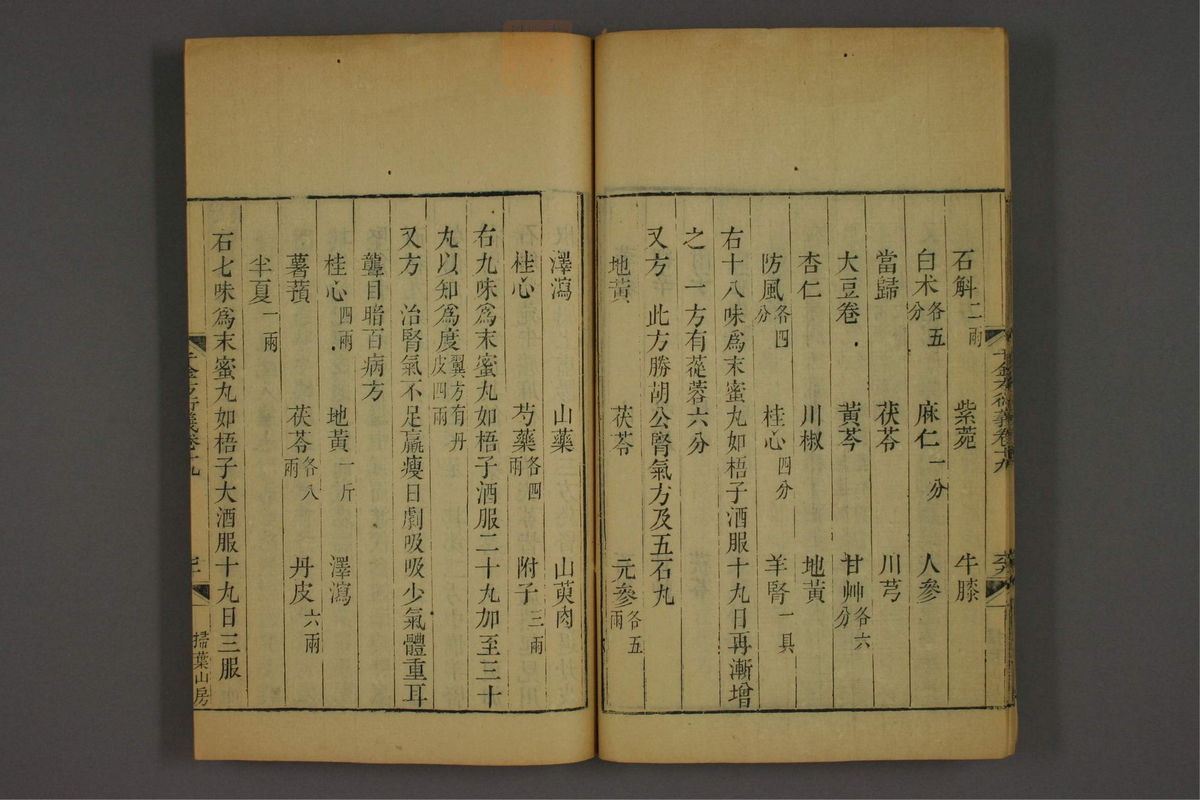 石斛二兩　紫菀　牛膝
白术各五分　麻仁一分　人參
當歸　茯苓　川芎
大豆卷　黃芩　甘艸各六分
杏仁　川椒　地黃
防風各四分　桂心四分　羊腎一具
右十八味爲末蜜丸如梧子酒服十丸日再漸增
之　一方有蓯蓉六分
又方　此方勝胡公腎氣方及五石丸
地黃　茯苓　元參各五兩
澤瀉　山藥　山萸肉
桂心　芍藥各四兩　附子三兩
右九味爲末蜜丸如梧子酒服二十丸加至三十
丸以知爲度翼方有丹皮四兩
又方　治腎氣不足羸瘦日劇吸吸少氣體重耳
聾目暗百病方
桂心四兩　地黃一斤　澤瀉
薯蕷　茯苓各八兩　丹皮六兩
半夏一兩
右七味爲末蜜丸如梧子大酒服十丸日三服
千金方衍義卷十九
掃葉山房